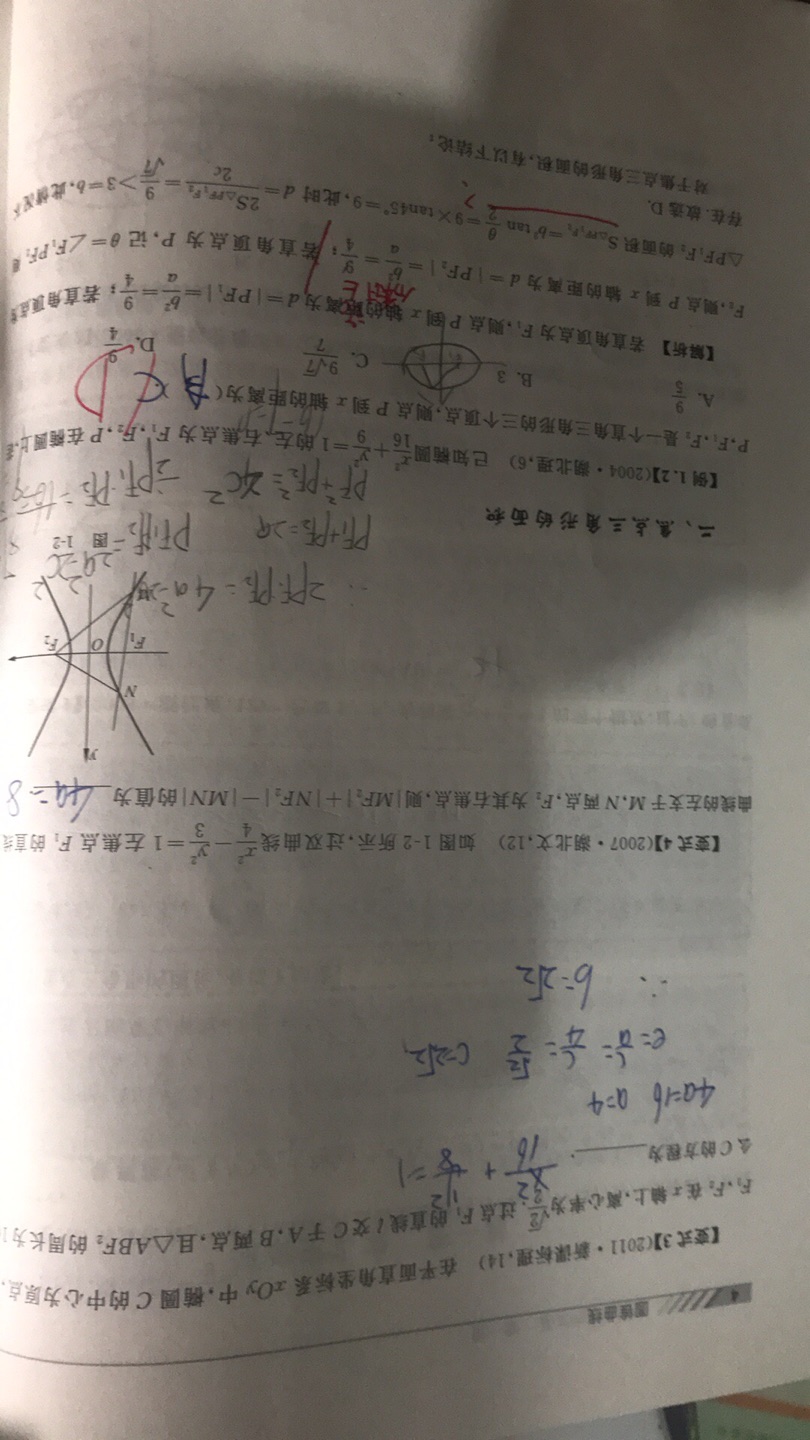 4 圆锥曲线
【变式 3】(2011·新课标理,14) 在平面直角坐标系 xOy 中,椭圆 C 的中心为原点,
F₁,F₂ 在 x 轴上,离心率为 √2/2. 过点 F₁ 的直线 l 交 C 于 A,B 两点,且△ABF₂ 的周长为
么 C 的方程为 x²/16 + y²/8 =1 .
4a=16 a=4
e= c/a = c/4 = √2/2 c=2√2,
∴ b=2√2
【变式 4】(2007·湖北文,12) 如图 1-2 所示,过双曲线 x²/4 − y²/3 =1 左焦点 F₁ 的直线
曲线的左支于 M,N 两点,F₂ 为其右焦点,则|MF₂|+|NF₂|−|MN|的值为 4a=8
y
N
F₁ O F₂
图 1-2
∴ 2PF₁·PF₂=4a²-
PF₁+PF₂=2a
PF₁²+PF₂²=4c²
二、焦点三角形的面积
【例 1.2】(2004·湖北理,6) 已知椭圆 x²/16 + y²/9 =1 的左、右焦点为 F₁,F₂,P 在椭圆上,若
P,F₁,F₂ 是一个直角三角形的三个顶点,则点 P 到 x 轴的距离为( ) D
A. 9/5 B. 3 C. 9√7/7 D. 9/4
【解析】 若直角顶点为 F₁,则点 P 到 x 轴的距离为 d=|PF₁|= b²/a = 9/4 ;若直角顶点为
F₂,则点 P 到 x 轴的距离为 d=|PF₂|= b²/a = 9/4 ;若直角顶点为 P,记 θ=∠F₁PF₂,则
△PF₁F₂ 的面积 S△PF₁F₂=b² tan θ/2 =9×tan45°=9,此时 d= 2S△PF₁F₂/2c = 9/√7 >3=b,此情况不
存在. 故选 D.
对于焦点三角形的面积,有以下结论: